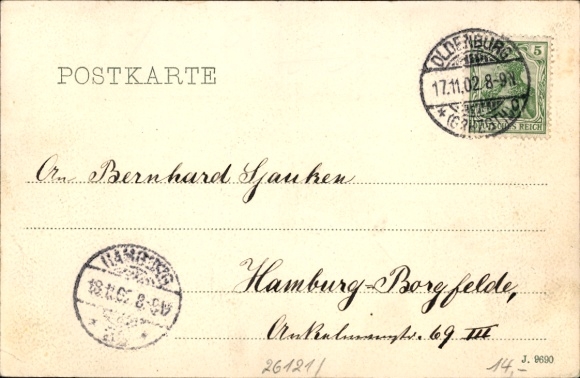 POSTKARTE
OLDENBURG
17.11.02. 8-9N
* (GRHZGTH.) *
5
REICH
An Bernhard Sjauken
HAMBURG
18.11.02. 8-9
Hamburg-Borgfelde,
Ankelmannstr. 69 III
26121/
14,-
J. 9690